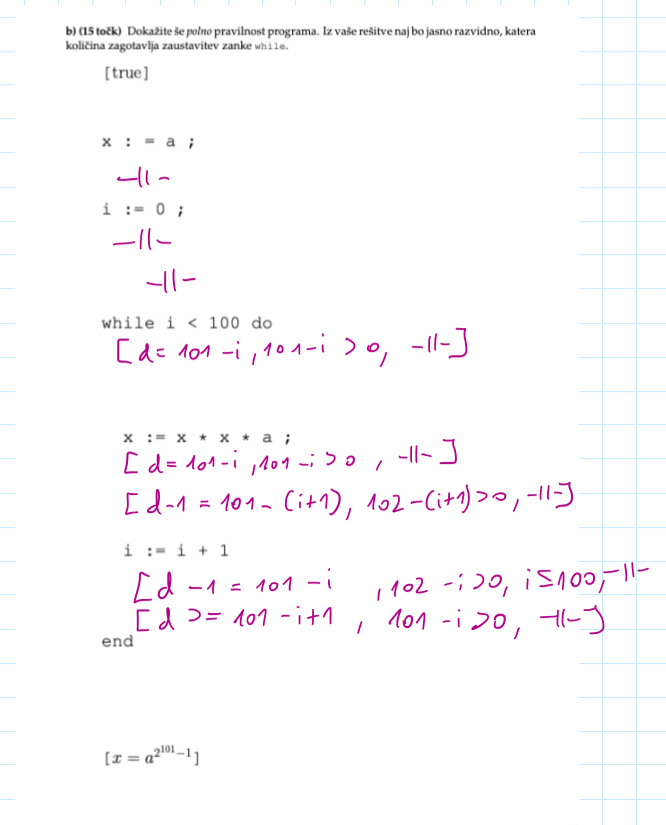 b) (15 točk) Dokažite še polno pravilnost programa. Iz vaše rešitve naj bo jasno razvidno, katera
količina zagotavlja zaustavitev zanke while.
[true]
x : = a ;
-||-
i := 0 ;
-||-
-||-
while i < 100 do
[d= 101-i, 101-i > 0, -||-]
x := x * x * a ;
[d= 101-i, 101-i > 0, -||-]
[d-1 = 101-(i+1), 102-(i+1)>0, -||-]
i := i + 1
[d-1 = 101-i , 102-i>0, i≤100, -||-
[d >= 101-i+1 , 101-i>0, -||-]
end
[x = a^{2^{101}-1}]